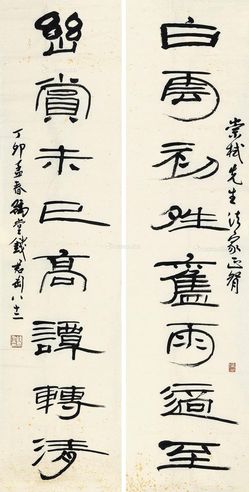 崇 先生法家正
白雲初夝舊雨適至
幽賞未已高譚轉清
丁卯孟春豫堂錢君匋八十一